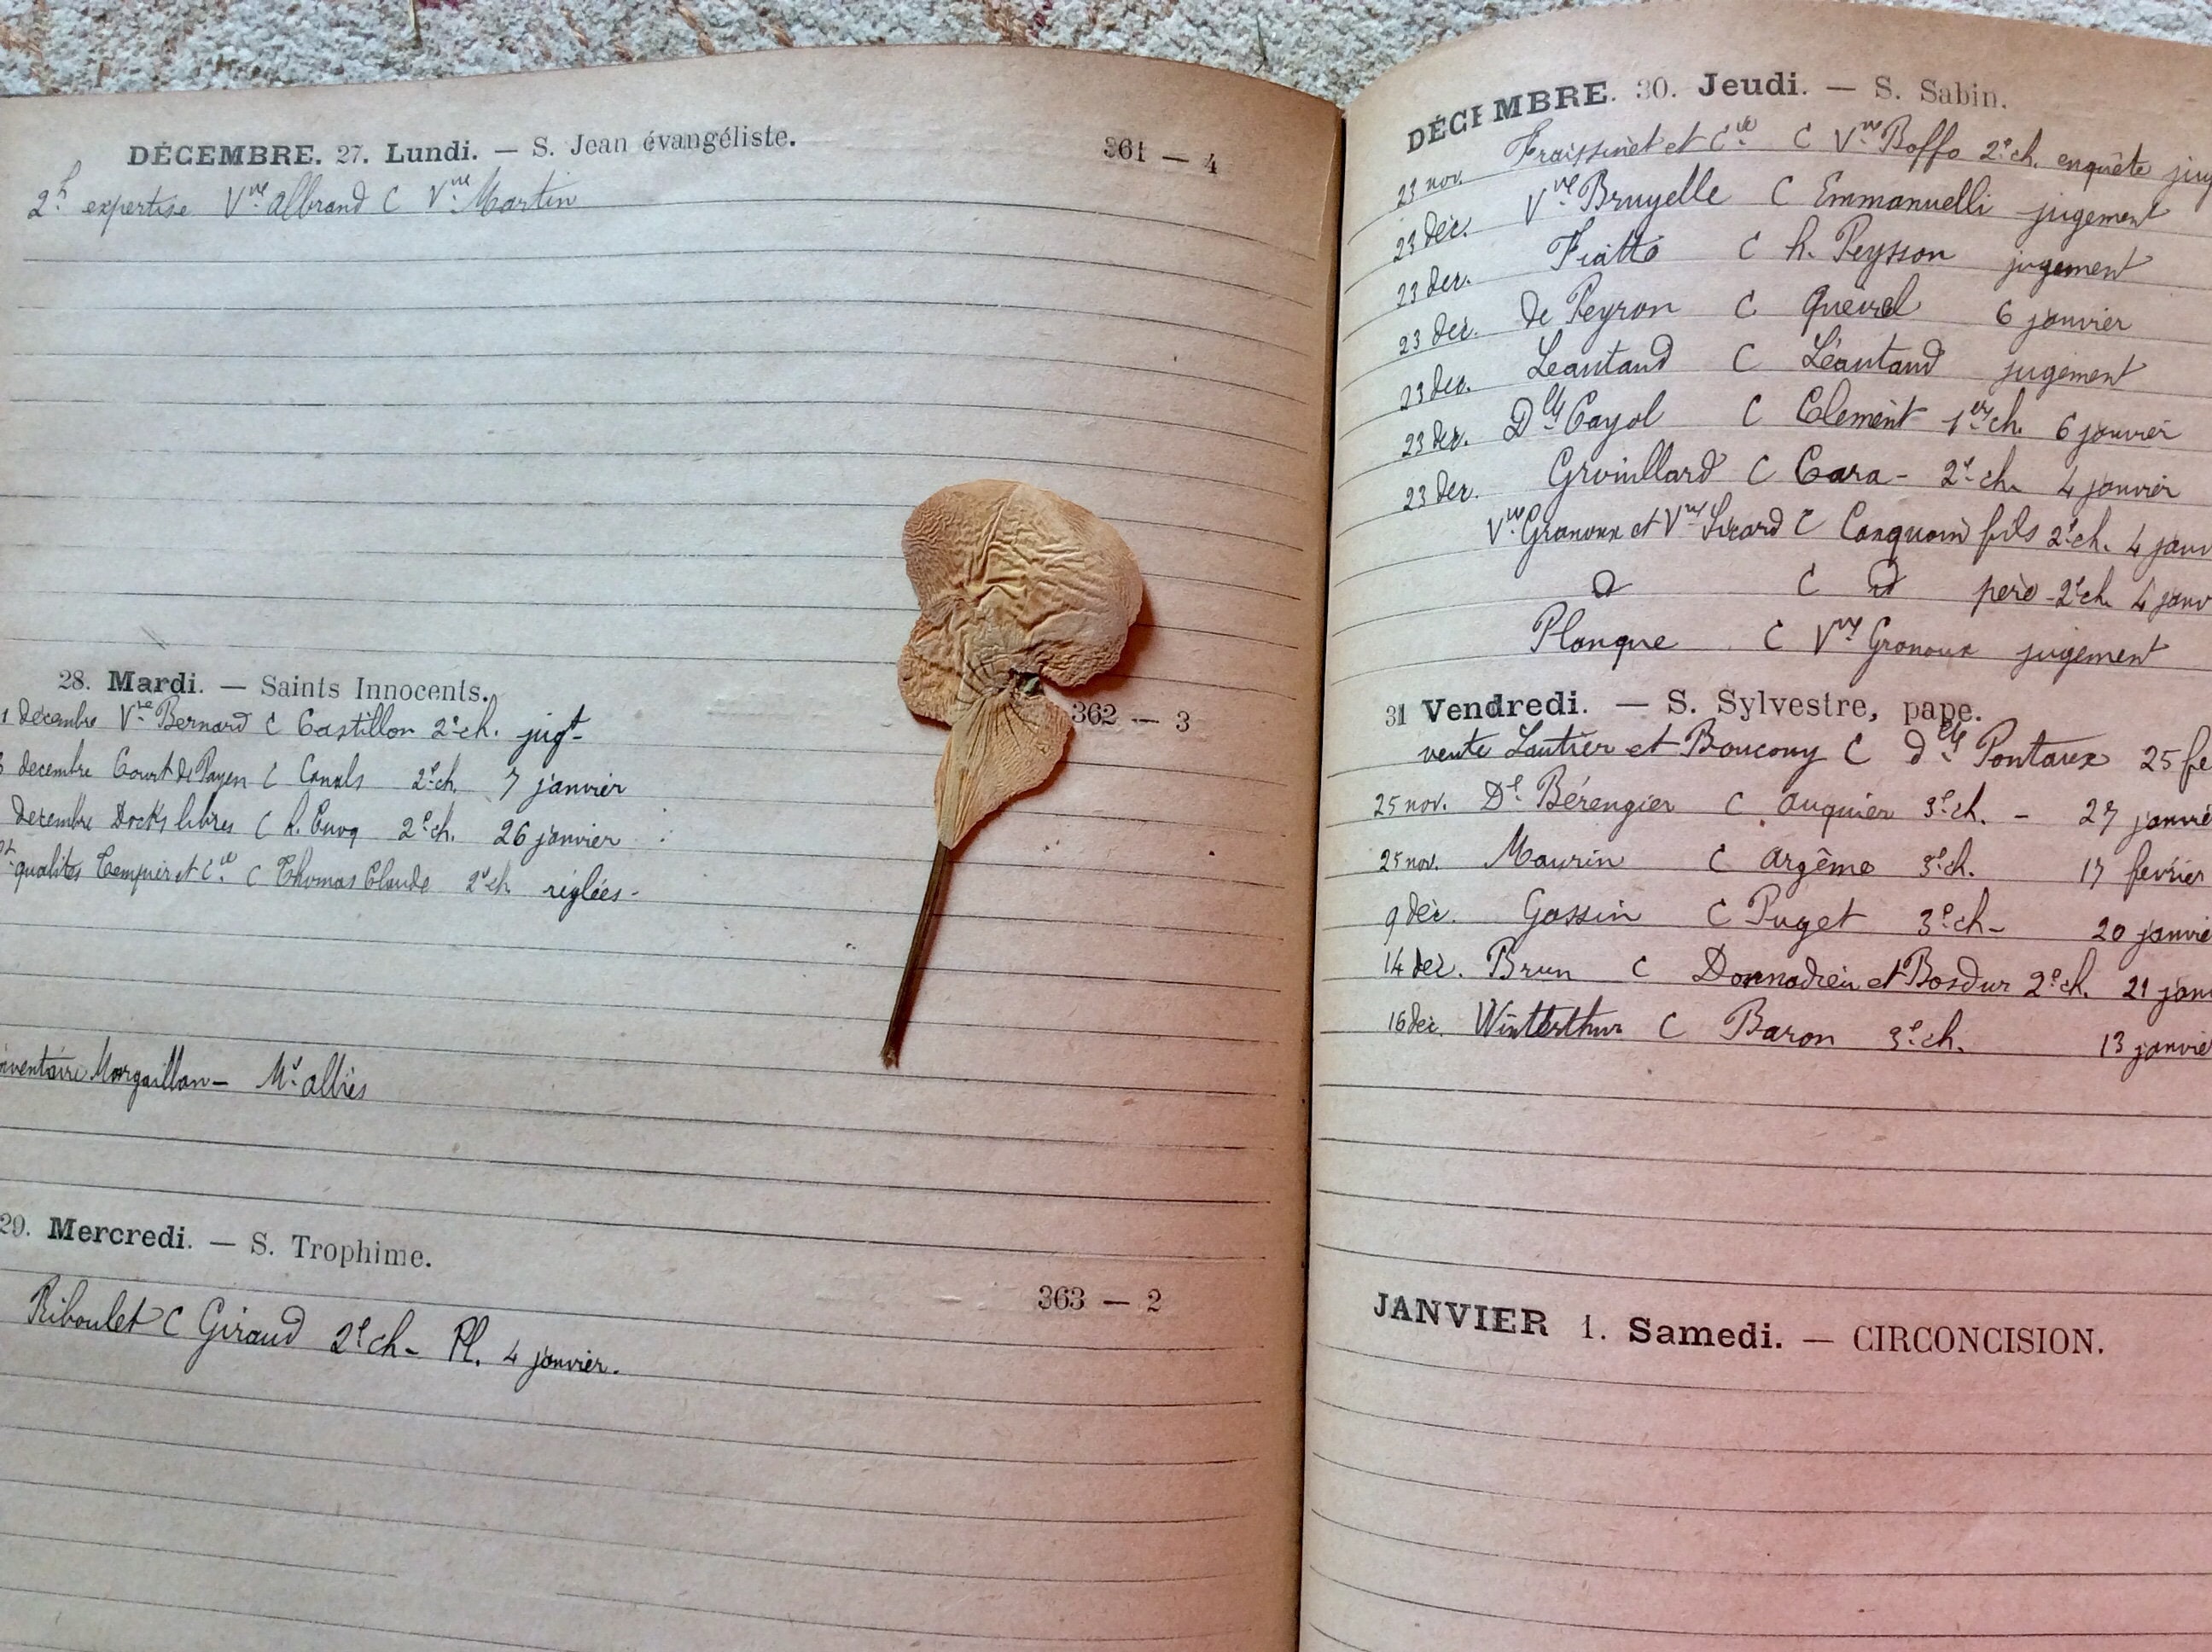 DÉCEMBRE. 27. Lundi. — S. Jean évangéliste. 361 — 4
2h expertise Vve Albrand C Vve Martin
28. Mardi. — Saints Innocents. 362 — 3
décembre Vve Bernard C Castillon 2e ch. jugt
décembre Court de Payen C Canals 2e ch. 7 janvier
décembre Docks libres C h. Cucq 2e ch. 26 janvier
qualités Tempier et Cie C Thomas Claude 2e ch. réglées -
inventaire Margaillan - Me Albiès
29. Mercredi. — S. Trophime. 363 — 2
Riboulet C Giraud 2e ch - Pl. 4 janvier.
DÉCEMBRE. 30. Jeudi. — S. Sabin.
23 nov. Fraissinet et Cie C Vve Boffo 2e ch. enquête
23 déc. Vve Bruyelle C Emmanuelli jugement
23 déc. Fiatto C h. Peysson jugement
23 déc. de Peyron C Quevel 6 janvier
23 déc. Léautaud C Léautaud jugement
23 déc. Dlle Cayol C Clément 1ère ch. 6 janvier
23 déc. Grouillard C Cara - 2e ch. 4 janvier
Vve Granoux et Vve Sicard C Conquoin fils 2e ch. 4 janv
d C d père - 2e ch. 4 janv
Planque C Vve Granoux jugement
31 Vendredi. — S. Sylvestre, pape.
vente Lautier et Boucony C dlle Pontaux 25 fe
25 nov. De Bérengier C Auquier 3e ch. - 27 janvie
25 nov. Maurin C Argême 3e ch. 17 février
9 déc. Gassin C Puget 3e ch - 20 janvie
14 déc. Brun C Donnadieu et Bosdur 2e ch. 21 janv
16 déc. Winterthur C Baron 3e ch. 13 janvie
JANVIER 1. Samedi. — CIRCONCISION.